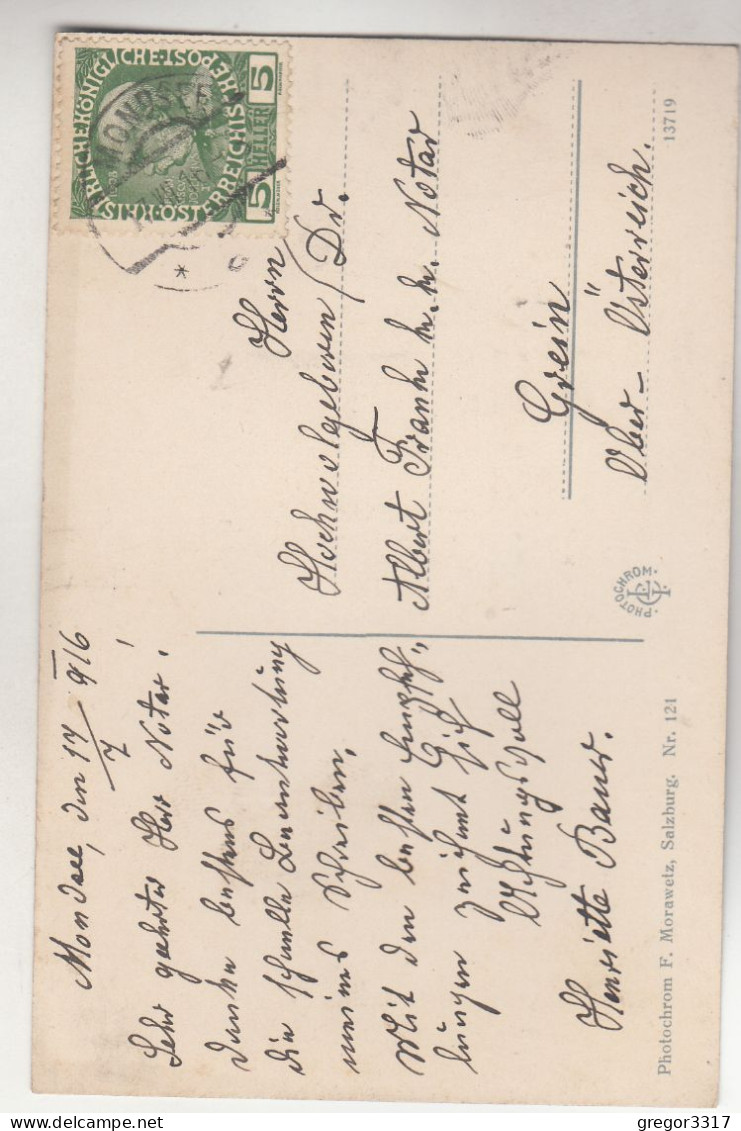 Mondsee, den 17/7 916
Sehr geehrter Herr Notar!
Danke bestens für
die schnelle Beantwortung
meines Schreibens,
Mit den besten Empfeh-
lungen zeichnet sich
Achtungsvoll
Henriette Bauer.
KAISERLICHE KÖNIGLICHE ÖSTERREICHISCHE POST
5 HELLER 5
1848 1908
MONDSEE
Herrn
Hochwolgeboren Dr.
Albert Frank k. k. Notar
Grein
Ober-Österreich.
13719
PHOTOCHROM
Photochrom F. Morawetz, Salzburg. Nr. 121
gregor3317